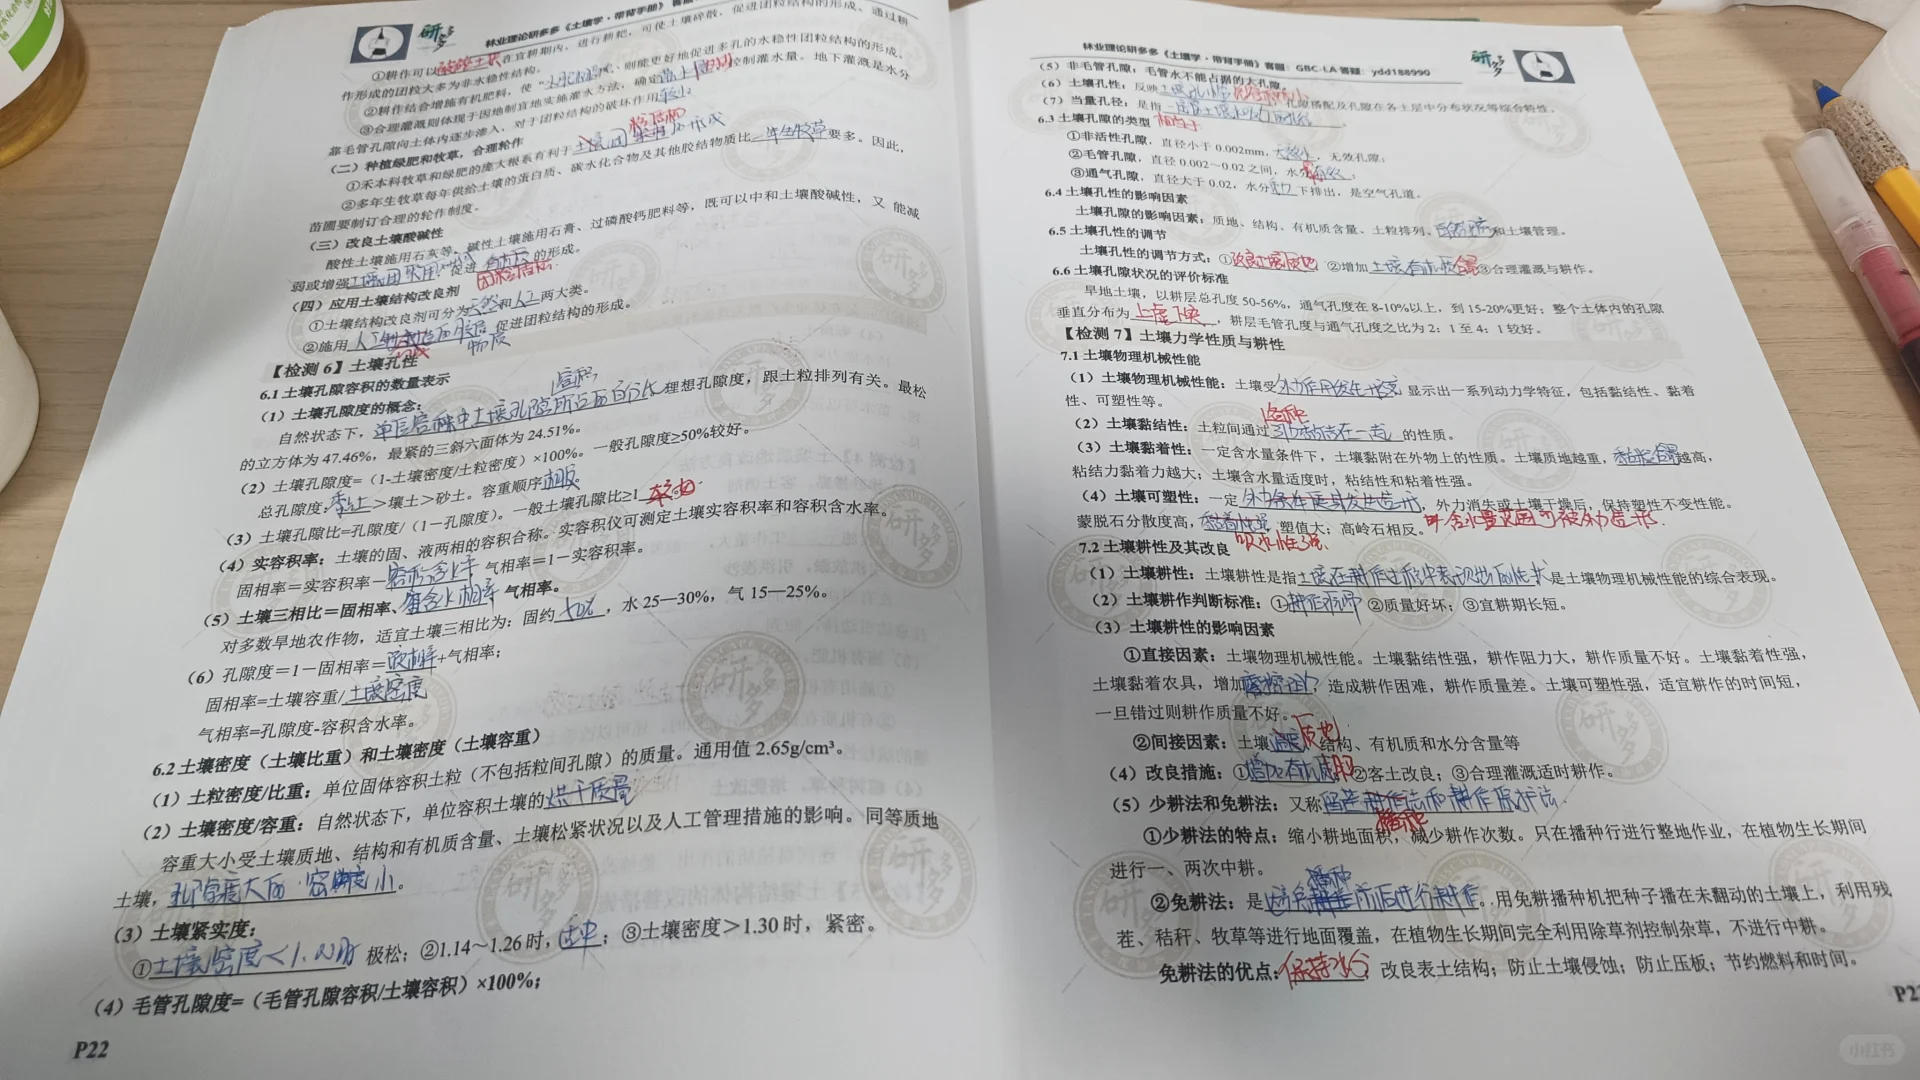 林业理论研多多《土壤学·带背手册》
①耕作可以 在宜耕期内，进行耕耙，可使土壤碎散，促进团粒结构的形成。通过耕
作形成的团粒大多为非水稳性结构。
②耕作结合增施有机肥料，使“ 、则能更好地促进多孔的水稳性团粒结构的形成。
③合理灌溉则体现于因地制宜地实施灌水方法，确定 控制灌水量。地下灌溉是水分
靠毛管孔隙向土体内逐步渗入，对于团粒结构的破坏作用较小
（二）种植绿肥和牧草，合理轮作
①禾本科牧草和绿肥的庞大根系有利于土壤团 的形成
②多年生牧草每年供给土壤的蛋白质、碳水化合物及其他胶结物质比一年生牧草要多。因此，
苗圃要制订合理的轮作制度。
（三）改良土壤酸碱性
酸性土壤施用石灰等，碱性土壤施用石膏、过磷酸钙肥料等，既可以中和土壤酸碱性，又 能减
弱或增强土壤团 促进 的形成。
团粒结构
（四）应用土壤结构改良剂
①土壤结构改良剂可分为天然和人工两大类。
②施用人工 促进团粒结构的形成。
物质
【检测 6】土壤孔性
6.1 土壤孔隙容积的数量表示
（1）土壤孔隙度的概念：
容积
自然状态下，单位容积中土壤孔隙所占的百分比 理想孔隙度，跟土粒排列有关。最松
的立方体为 47.46%，最紧的三斜六面体为 24.51%。
（2）土壤孔隙度=（1-土壤密度/土粒密度）×100%。一般孔隙度≥50%较好。
总孔隙度：黏土＞壤土＞砂土。容重顺序相反。
（3）土壤孔隙比=孔隙度/（1－孔隙度）。一般土壤孔隙比≥1 较好
（4）实容积率：土壤的固、液两相的容积合称。实容积仪可测定土壤实容积率和容积含水率。
固相率=实容积率－容积含水率 气相率=1－实容积率。
（5）土壤三相比=固相率、 气相率。
对多数旱地农作物，适宜土壤三相比为：固约 50%，水 25—30%，气 15—25%。
（6）孔隙度=1－固相率=液相率+气相率；
固相率=土壤容重/土壤密度
气相率=孔隙度-容积含水率。
6.2 土壤密度（土壤比重）和土壤密度（土壤容重）
（1）土粒密度/比重：单位固体容积土粒（不包括粒间孔隙）的质量。通用值 2.65g/cm³。
（2）土壤密度/容重：自然状态下，单位容积土壤的烘干质量
容重大小受土壤质地、结构和有机质含量、土壤松紧状况以及人工管理措施的影响。同等质地
土壤，孔隙度大的 密度小。
（3）土壤紧实度：
①土壤密度＜1. 时 极松；②1.14～1.26 时，适中；③土壤密度＞1.30 时，紧密。
（4）毛管孔隙度=（毛管孔隙容积/土壤容积）×100%；
P22
林业理论研多多《土壤学·带背手册》客服：GBC-LA 答疑：ydd188990
（5）非毛管孔隙：毛管水不能占据的大孔隙。
（6）土壤孔性：反映土壤孔 、孔隙搭配及孔隙在各土层中分布状况等综合特性。
（7）当量孔径：是指一定 。
相当于
6.3 土壤孔隙的类型
①非活性孔隙，直径小于 0.002mm， ，无效孔隙；
②毛管孔隙，直径 0.002～0.02 之间，水分 ；
③通气孔隙，直径大于 0.02，水分 下排出，是空气孔道。
6.4 土壤孔性的影响因素
土壤孔隙的影响因素：质地、结构、有机质含量、土粒排列、自然 和土壤管理。
6.5 土壤孔性的调节
土壤孔性的调节方式：①改良土壤质地 ②增加土壤有机质含量③合理灌溉与耕作。
6.6 土壤孔隙状况的评价标准
旱地土壤，以耕层总孔度 50-56%，通气孔度在 8-10%以上，到 15-20%更好；整个土体内的孔隙
垂直分布为上虚下实，耕层毛管孔度与通气孔度之比为 2：1 至 4：1 较好。
【检测 7】土壤力学性质与耕性
7.1 土壤物理机械性能
（1）土壤物理机械性能：土壤受外力作用发生形变 显示出一系列动力学特征，包括黏结性、黏着
性、可塑性等。
各种
（2）土壤黏结性：土粒间通过引力黏结在一起 的性质。
（3）土壤黏着性：一定含水量条件下，土壤黏附在外物上的性质。土壤质地越重，黏粒含量越高，
粘结力黏着力越大；土壤含水量适度时，粘结性和粘着性强。
（4）土壤可塑性：一定 ，外力消失或土壤干燥后，保持塑性不变性能。
蒙脱石分散度高， 塑值大；高岭石相反。 含水量范围可被外力造形.
吸水性强
7.2 土壤耕性及其改良
（1）土壤耕性：土壤耕性是指土壤在耕作过程中表现出的性状是土壤物理机械性能的综合表现。
（2）土壤耕作判断标准：①耕作难易 ②质量好坏；③宜耕期长短。
（3）土壤耕性的影响因素
①直接因素：土壤物理机械性能。土壤黏结性强，耕作阻力大，耕作质量不好。土壤黏着性强，
土壤黏着农具，增加摩擦阻力，造成耕作困难，耕作质量差。土壤可塑性强，适宜耕作的时间短，
一旦错过则耕作质量不好。
②间接因素：土壤质地 结构、有机质和水分含量等
（4）改良措施：①增施有机肥 ②客土改良；③合理灌溉适时耕作。
（5）少耕法和免耕法：又称留茬播种法和耕作保护法.
①少耕法的特点：缩小耕地面积，减少耕作次数。只在播种行进行整地作业，在植物生长期间
进行一、两次中耕。
播种
②免耕法：是 前后进行耕作。用免耕播种机把种子播在未翻动的土壤上，利用残
茬、秸秆、牧草等进行地面覆盖，在植物生长期间完全利用除草剂控制杂草，不进行中耕。
免耕法的优点：保持水分；改良表土结构；防止土壤侵蚀；防止压板；节约燃料和时间。
小红书